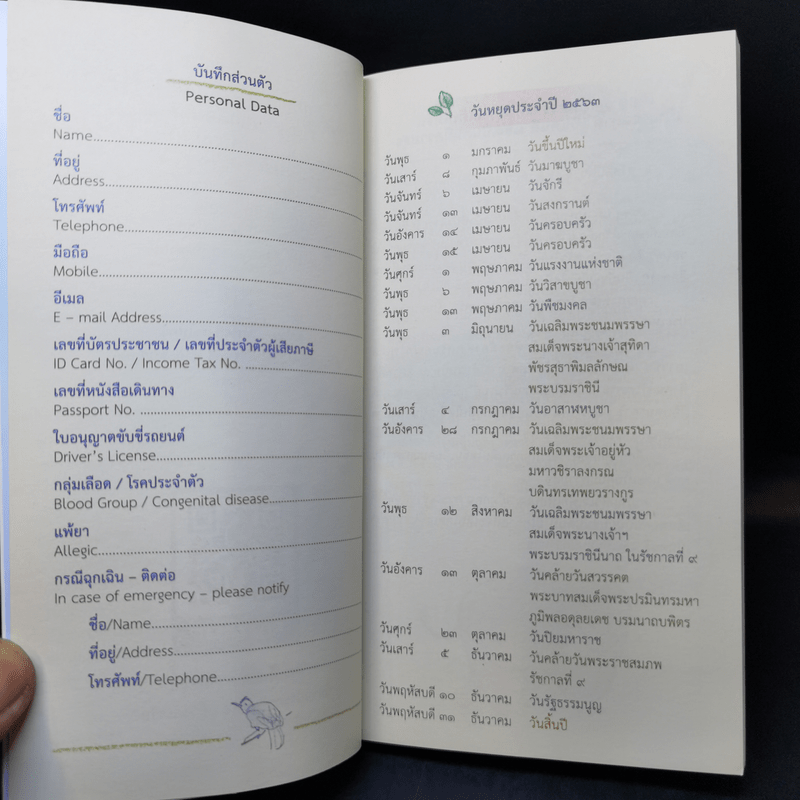 บันทึกส่วนตัว
Personal Data
ชื่อ
Name
ที่อยู่
Address
โทรศัพท์
Telephone
มือถือ
Mobile
อีเมล
E – mail Address
เลขที่บัตรประชาชน / เลขที่ประจำตัวผู้เสียภาษี
ID Card No. / Income Tax No.
เลขที่หนังสือเดินทาง
Passport No.
ใบอนุญาตขับขี่รถยนต์
Driver's License
กลุ่มเลือด / โรคประจำตัว
Blood Group / Congenital disease
แพ้ยา
Allegic
กรณีฉุกเฉิน – ติดต่อ
In case of emergency – please notify
ชื่อ/Name
ที่อยู่/Address
โทรศัพท์/Telephone
วันหยุดประจำปี ๒๕๖๓
วันพุธ ๑ มกราคม วันขึ้นปีใหม่
วันเสาร์ ๘ กุมภาพันธ์ วันมาฆบูชา
วันจันทร์ ๖ เมษายน วันจักรี
วันจันทร์ ๑๓ เมษายน วันสงกรานต์
วันอังคาร ๑๔ เมษายน วันครอบครัว
วันพุธ ๑๕ เมษายน วันครอบครัว
วันศุกร์ ๑ พฤษภาคม วันแรงงานแห่งชาติ
วันพุธ ๖ พฤษภาคม วันวิสาขบูชา
วันพุธ ๑๓ พฤษภาคม วันพืชมงคล
วันพุธ ๓ มิถุนายน วันเฉลิมพระชนมพรรษา
สมเด็จพระนางเจ้าสุทิดา
พัชรสุธาพิมลลักษณ
พระบรมราชินี
วันเสาร์ ๔ กรกฎาคม วันอาสาฬหบูชา
วันอังคาร ๒๘ กรกฎาคม วันเฉลิมพระชนมพรรษา
สมเด็จพระเจ้าอยู่หัว
มหาวชิราลงกรณ
บดินทรเทพยวรางกูร
วันพุธ ๑๒ สิงหาคม วันเฉลิมพระชนมพรรษา
สมเด็จพระนางเจ้าฯ
พระบรมราชินีนาถ ในรัชกาลที่ ๙
วันอังคาร ๑๓ ตุลาคม วันคล้ายวันสวรรคต
พระบาทสมเด็จพระปรมินทรมหา
ภูมิพลอดุลยเดช บรมนาถบพิตร
วันศุกร์ ๒๓ ตุลาคม วันปิยมหาราช
วันเสาร์ ๕ ธันวาคม วันคล้ายวันพระราชสมภพ
รัชกาลที่ ๙
วันพฤหัสบดี ๑๐ ธันวาคม วันรัฐธรรมนูญ
วันพฤหัสบดี ๓๑ ธันวาคม วันสิ้นปี